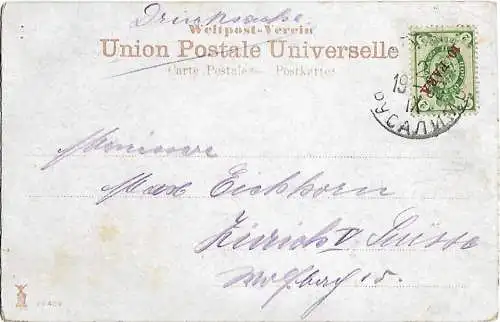 Drucksache
Weltpost-Verein
Union Postale Universelle
Carte Postale — Postkarte
10 PARA
19
IX
РУСАЛИМЪ
Monsieur
Max Eichhorn
Zürich V Suisse
Wolfbach 15.